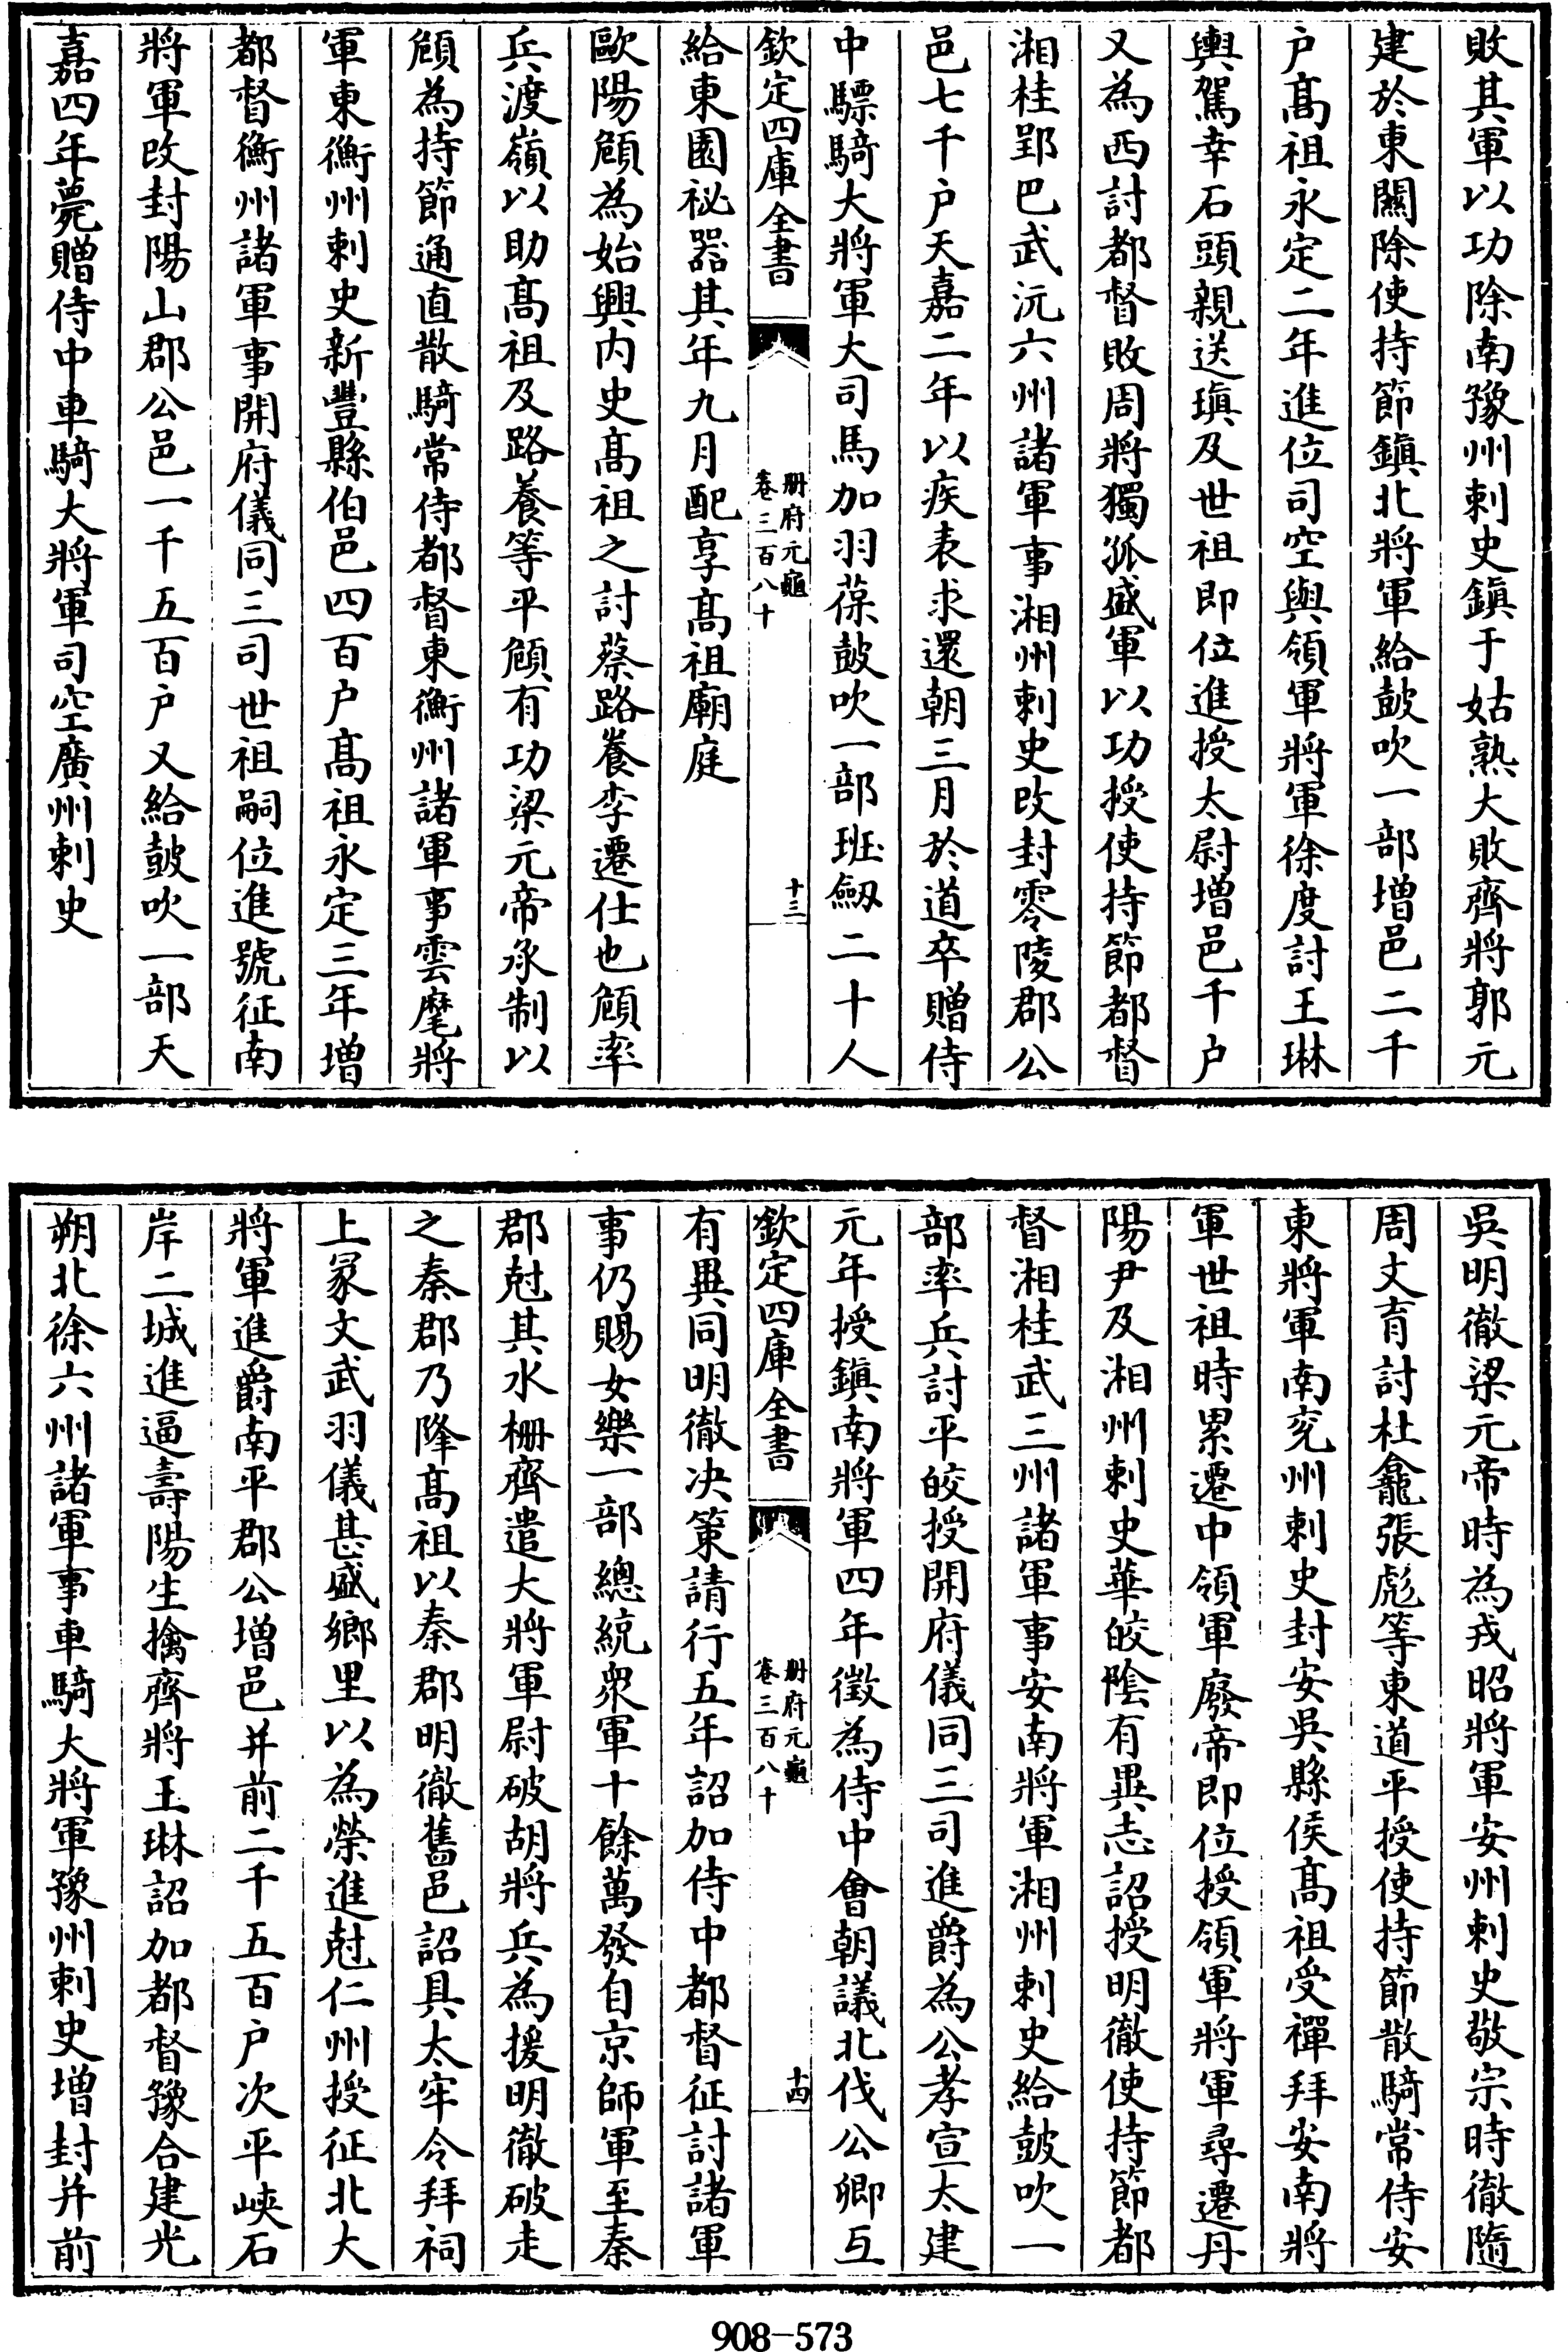 敗其軍以功除南豫州刺史鎮于姑熟大敗齊將郭元
建於東關除使持節鎮北將軍給鼓吹一部增邑二千
户髙祖永定二年進位司空與領軍將軍徐度討王琳
輿駕幸石頭親送瑱及世祖即位進授太尉增邑千户
又為西討都督敗周將獨孤盛軍以功授使持節都督
湘桂郢巴武沅六州諸軍事湘州刺史改封零陵郡公
邑七千户天嘉二年以疾表求還朝三月於道卒贈侍
中驃騎大將軍大司馬加羽葆鼓吹一部班劔二十人
欽定四庫全書
册府元龜
卷三百八十
十三
給東園祕器其年九月配享髙祖廟庭
歐陽頠為始興内史髙祖之討蔡路養李遷仕也頠率
兵渡嶺以助髙祖及路養等平頠有功梁元帝承制以
頠為持節通直散騎常侍都督東衡州諸軍事雲麾將
軍東衡州刺史新豐縣伯邑四百户髙祖永定三年增
都督衡州諸軍事開府儀同三司世祖嗣位進號征南
將軍改封陽山郡公邑一千五百户又給鼓吹一部天
嘉四年薨贈侍中車騎大將軍司空廣州刺史
吳明徹梁元帝時為戎昭將軍安州刺史敬宗時徹隨
周文育討杜龕張彪等東道平授使持節散騎常侍安
東將軍南兖州刺史封安吳縣侯髙祖受禪拜安南將
軍世祖時累遷中領軍廢帝即位授領軍將軍尋遷丹
陽尹及湘州刺史華皎陰有異志詔授明徹使持節都
督湘桂武三州諸軍事安南將軍湘州刺史給鼓吹一
部率兵討平皎授開府儀同三司進爵為公孝宣太建
元年授鎮南將軍四年徵為侍中會朝議北伐公卿互
欽定四庫全書
册府元龜
卷三百八十
十四
有異同明徹决策請行五年詔加侍中都督征討諸軍
事仍賜女樂一部總統衆軍十餘萬發自京師軍至秦
郡尅其水栅齊遣大將軍尉破胡將兵為援明徹破走
之秦郡乃降髙祖以秦郡明徹舊邑詔具太牢令拜祠
上冢文武羽儀甚盛鄉里以為榮進尅仁州授征北大
將軍進爵南平郡公增邑并前二千五百户次平峽石
岸二城進逼壽陽生擒齊將王琳詔加都督豫合建光
朔北徐六州諸軍事車騎大將軍豫州刺史増封并前
908-573